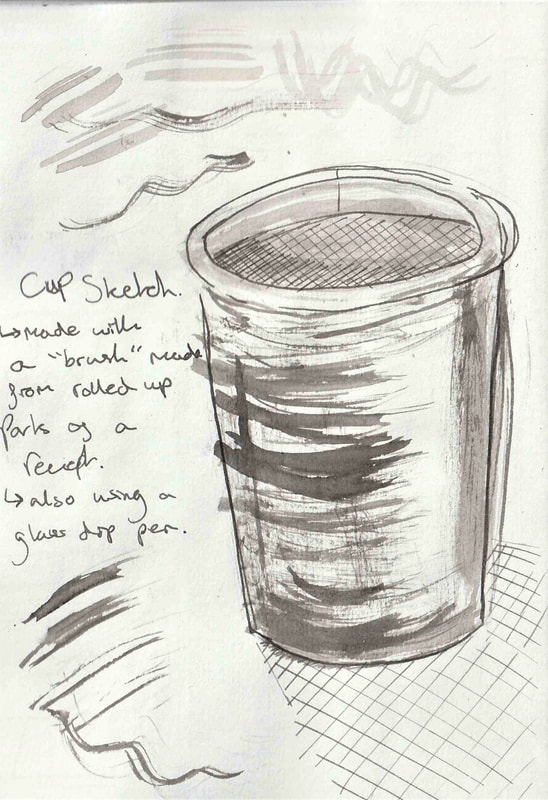 Cup Sketch.
↳ made with
a "brush" made
from rolled up
parts of a
receipt.
↳ also using a
glass dip pen.